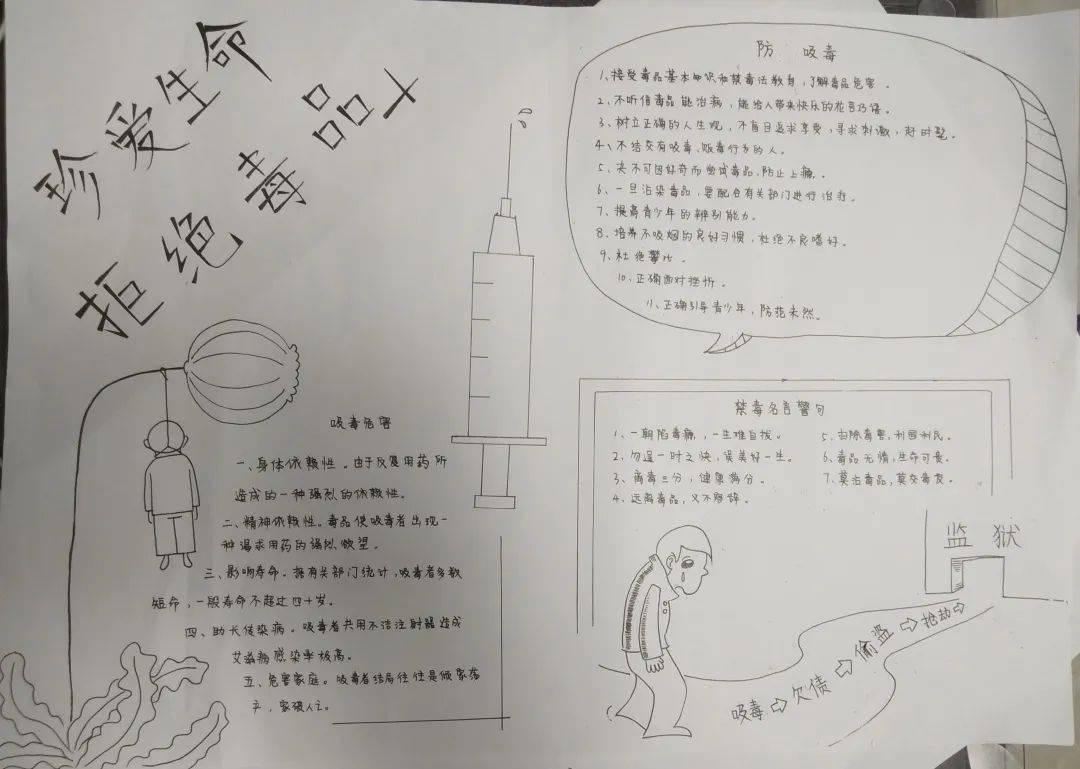 珍爱生命
拒绝毒品
吸毒危害
一、身体依赖性。由于反复用药所
造成的一种强烈的依赖性。
二、精神依赖性。毒品使吸毒者出现一
种渴求用药的强烈欲望。
三、影响寿命。据有关部门统计，吸毒者多数
短命，一般寿命不超过四十岁。
四、助长传染病。吸毒者共用不洁注射器造成
艾滋病感染率极高。
五、危害家庭。吸毒者结局往往是倾家荡
产，家破人亡。
防 吸毒
1、接受毒品基本知识和禁毒法教育，了解毒品危害。
2、不听信毒品能治病，能给人带来快乐的花言巧语。
3、树立正确的人生观，不盲目追求享受，寻求刺激，赶时髦。
4、不结交有吸毒、贩毒行为的人。
5、决不可因好奇而尝试毒品，防止上瘾。
6、一旦沾染毒品，要配合有关部门进行治疗。
7、提高青少年的辨别能力。
8、培养不吸烟的良好习惯，杜绝不良嗜好。
9、杜绝攀比。
10、正确面对挫折。
11、正确引导青少年，防范未然。
禁毒名言警句
1、一朝陷毒瘾，一生难自拔。
2、勿逞一时之快，误美好一生。
3、离毒三分，健康满分。
4、远离毒品，义不容辞。
5、去除毒害，利国利民。
6、毒品无情，生命可贵。
7、莫沾毒品，莫交毒友。
监狱
吸毒⇨欠债⇨偷盗⇨抢劫⇨